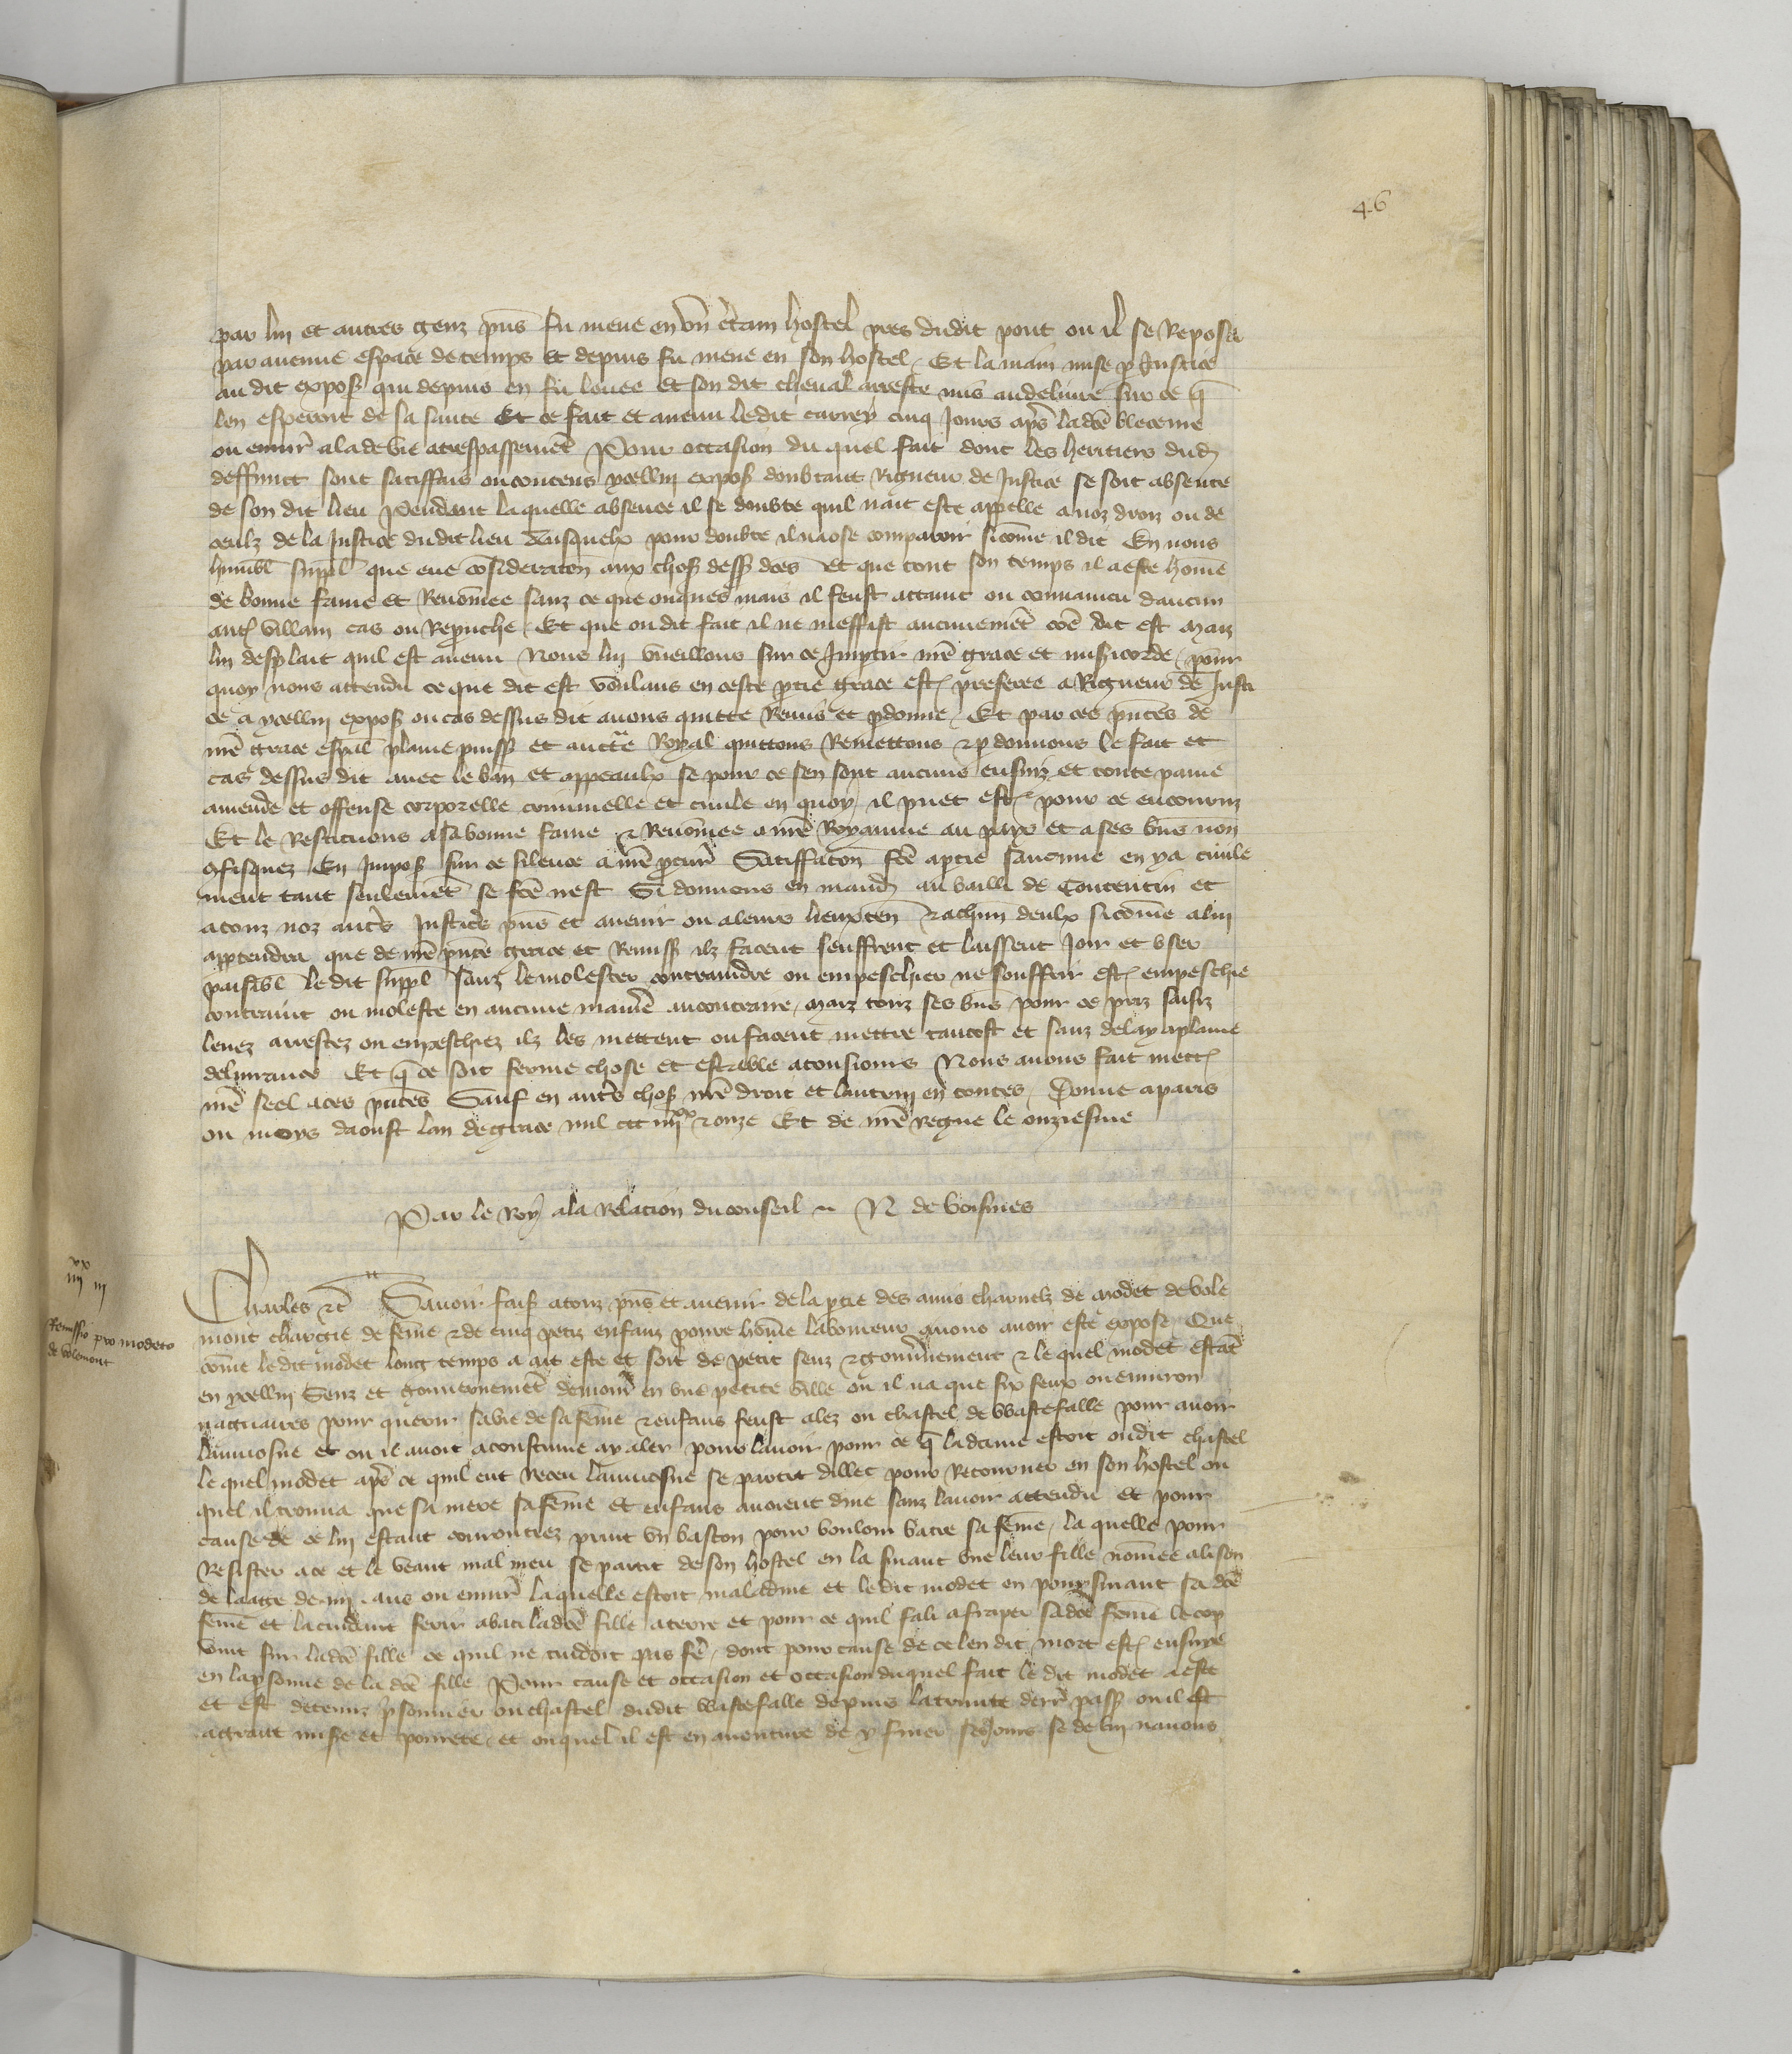 46
par lui et autres genz pñs fu mene en vn c̾tain hostel pres dudit pont ou il se Reposa
par aucune espace de temps Et depuis fu mene en son hostel / Et la main mise p̱ Justice
au dit expoß qui depuis en fu leuee et son dit cheual arreste mis au deliure sur ce q̃
len esperoit de sa sante Et ce fait et auenu ledit carrey cinq Jours ap̃s lad̃ce bleceure
ou enuir̃ ala de vie a trespassemẽt Pour occasion du quel fait dont les heritiers dud̃
deffunct sont satiffais ou contens ycellui expoß doubtant Rigueur de Justice se soit absente
de son dit lieu Pendant laquelle absence il se doubte quil nait este appelle a noz droiz ou de
ceulz de la Justice dudit lieu Ausquelx pour doubte il nose comparoir sicõme il dit En nous
humbl̃ suppl̃ que eue cõsideracõn aux choß desß d̃ces Et que tout son temps il a este home
de bonne fame et Renõmee sanz ce que onques mais il feust attaint ou conuaincu daucun
aut̃ villain cas ou Reprouche / Et que ou dit fait il ne meffist aucunemẽt cõe dit est Maiz
lui desplait quil est auenu Nous lui vueillons sur ce Imptir nr̃e grace et miß̃icorde / pour
quoy nous attendu ce que dit est voulans en ceste p̱tie grace est̃ preferee a Rigueur de Justi
ce a ycellui expoß ou cas dessus dit auons quitte Remis et p̱donne / Et par ces p̃ntes de
nr̃e grace esp̃al plaine puisß et auct̃e Royal quittons Remettons ⁊ p̱donnons le fait et
cas dessus dit auec le ban et appeaulx se pour ce sen sont aucuns ensuiz et toute paine
amende et offense corporelle criminelle et ciuile en quoy il puet est̃ pour ce encouruz
Et le Restituons a sa bonne fame ⁊ Renõmee a nr̃e Royaume au pays et a ses bñs non
ꝯfisquez En Impoß sur ce silence a nr̃e p̱cur̃ Satiffacõn fc̃e a p̱tie sauenue en ya ciuile
ment tant seulemẽt se fc̃e nest Si donnons en mand̃ au bailli de Coustentin et
a touz noz aut̃s Justic̃s pñs et auenir ou a leurs lieuxteñ ⁊ a chũn deulx sicõme a lui
appartendra que de nr̃e p̃nte grace et Remisß ilz facent seuffrent et laissent Joir et vser
paisibl̃ ledit suppl̃ sanz le molester contraindre ou empeschier ne souffrir est̃ empeschie
contraint ou moleste en aucune maniẽ au contraire / Maiz touz ses bñs pour ce priz saisiz
leuez arrestez ou empeschiez ilz les mettent ou facent mettre tantost et sanz delay a plaine
deliurance Et q̃ ce soit ferme chose et estable a tousiours Nous auons fait mett̃
nr̃e seel a ces p̃ntes Sauf en aut̃s choß nr̃e droit et lautruy en toutes / Donne a paris
ou moys daoust lan de grace mil ccc iiijˣˣ ⁊ onze Et de nr̃e Regne le onziesme
Par le Roy a la Relacion du conseil ~ N de voisines
iiijˣˣ iij
Remissio pro modeto
de volemont
Charles ⁊c̃ Sauoir faiß a touz pñs et auenir de la p̱tie des amis charnelz de Modet de vole
mont chargie de fẽme ⁊ de cinq petiz enfanz poure hõme laboureur nous auoir este expose Que
cõme ledit modet long temps a ait este et soit de petit senz ⁊ gouu̾nement ⁊ le quel modet estãt
en ycellui senz et gouuernemẽt demour̃ en vne petite ville ou il na que six feux ou enuiron
naguaires pour querir sa vie de sa fẽme ⁊ enfans feust alez ou chastel de Wastefalle pour auoir
laumosne et ou il auoit acoustume ay aler pour lauoir pour ce q̃ la dame estoit oudit chastel
le quel modet ap̃s ce quil eut Receu laumosne se partit dillec pour Retourner en son hostel ou
quel il trouua que sa mere sa fẽme et enfans auoient dine sanz lauoir attendu et pour
cause de ce lui estant couroucez print vn baston pour vouloir batre sa fẽme / la quelle pour
Resister a ce et le veant mal meu se partit de son hostel en la suiuant vne leur fille nõmee alison
de laage de iiij ans ou enuir̃ laquelle estoit maladiue et le dit modet en poursuiuant sa d̃ce
fẽme et la cuidant ferir abati lad̃ce fille a terre et pour ce quil fali a fraper sad̃ce fẽme le cop
vint sur lad̃ce fille ce quil ne cuidoit pas fẽ / dont pour cause de ce len dit mort est̃ ensuye
en la p̱sonne de la d̃ce fille Pour cause et occasion et occasion duquel fait le dit modet a este
et est detenuz p̱sonnier ou chastel dudit Wastefalle depuis la trinite derr̃ pasß ou il est
a grant miß̃e et pourete / et ou quel il est en auenture de y finer ses Jours se de lui nauons